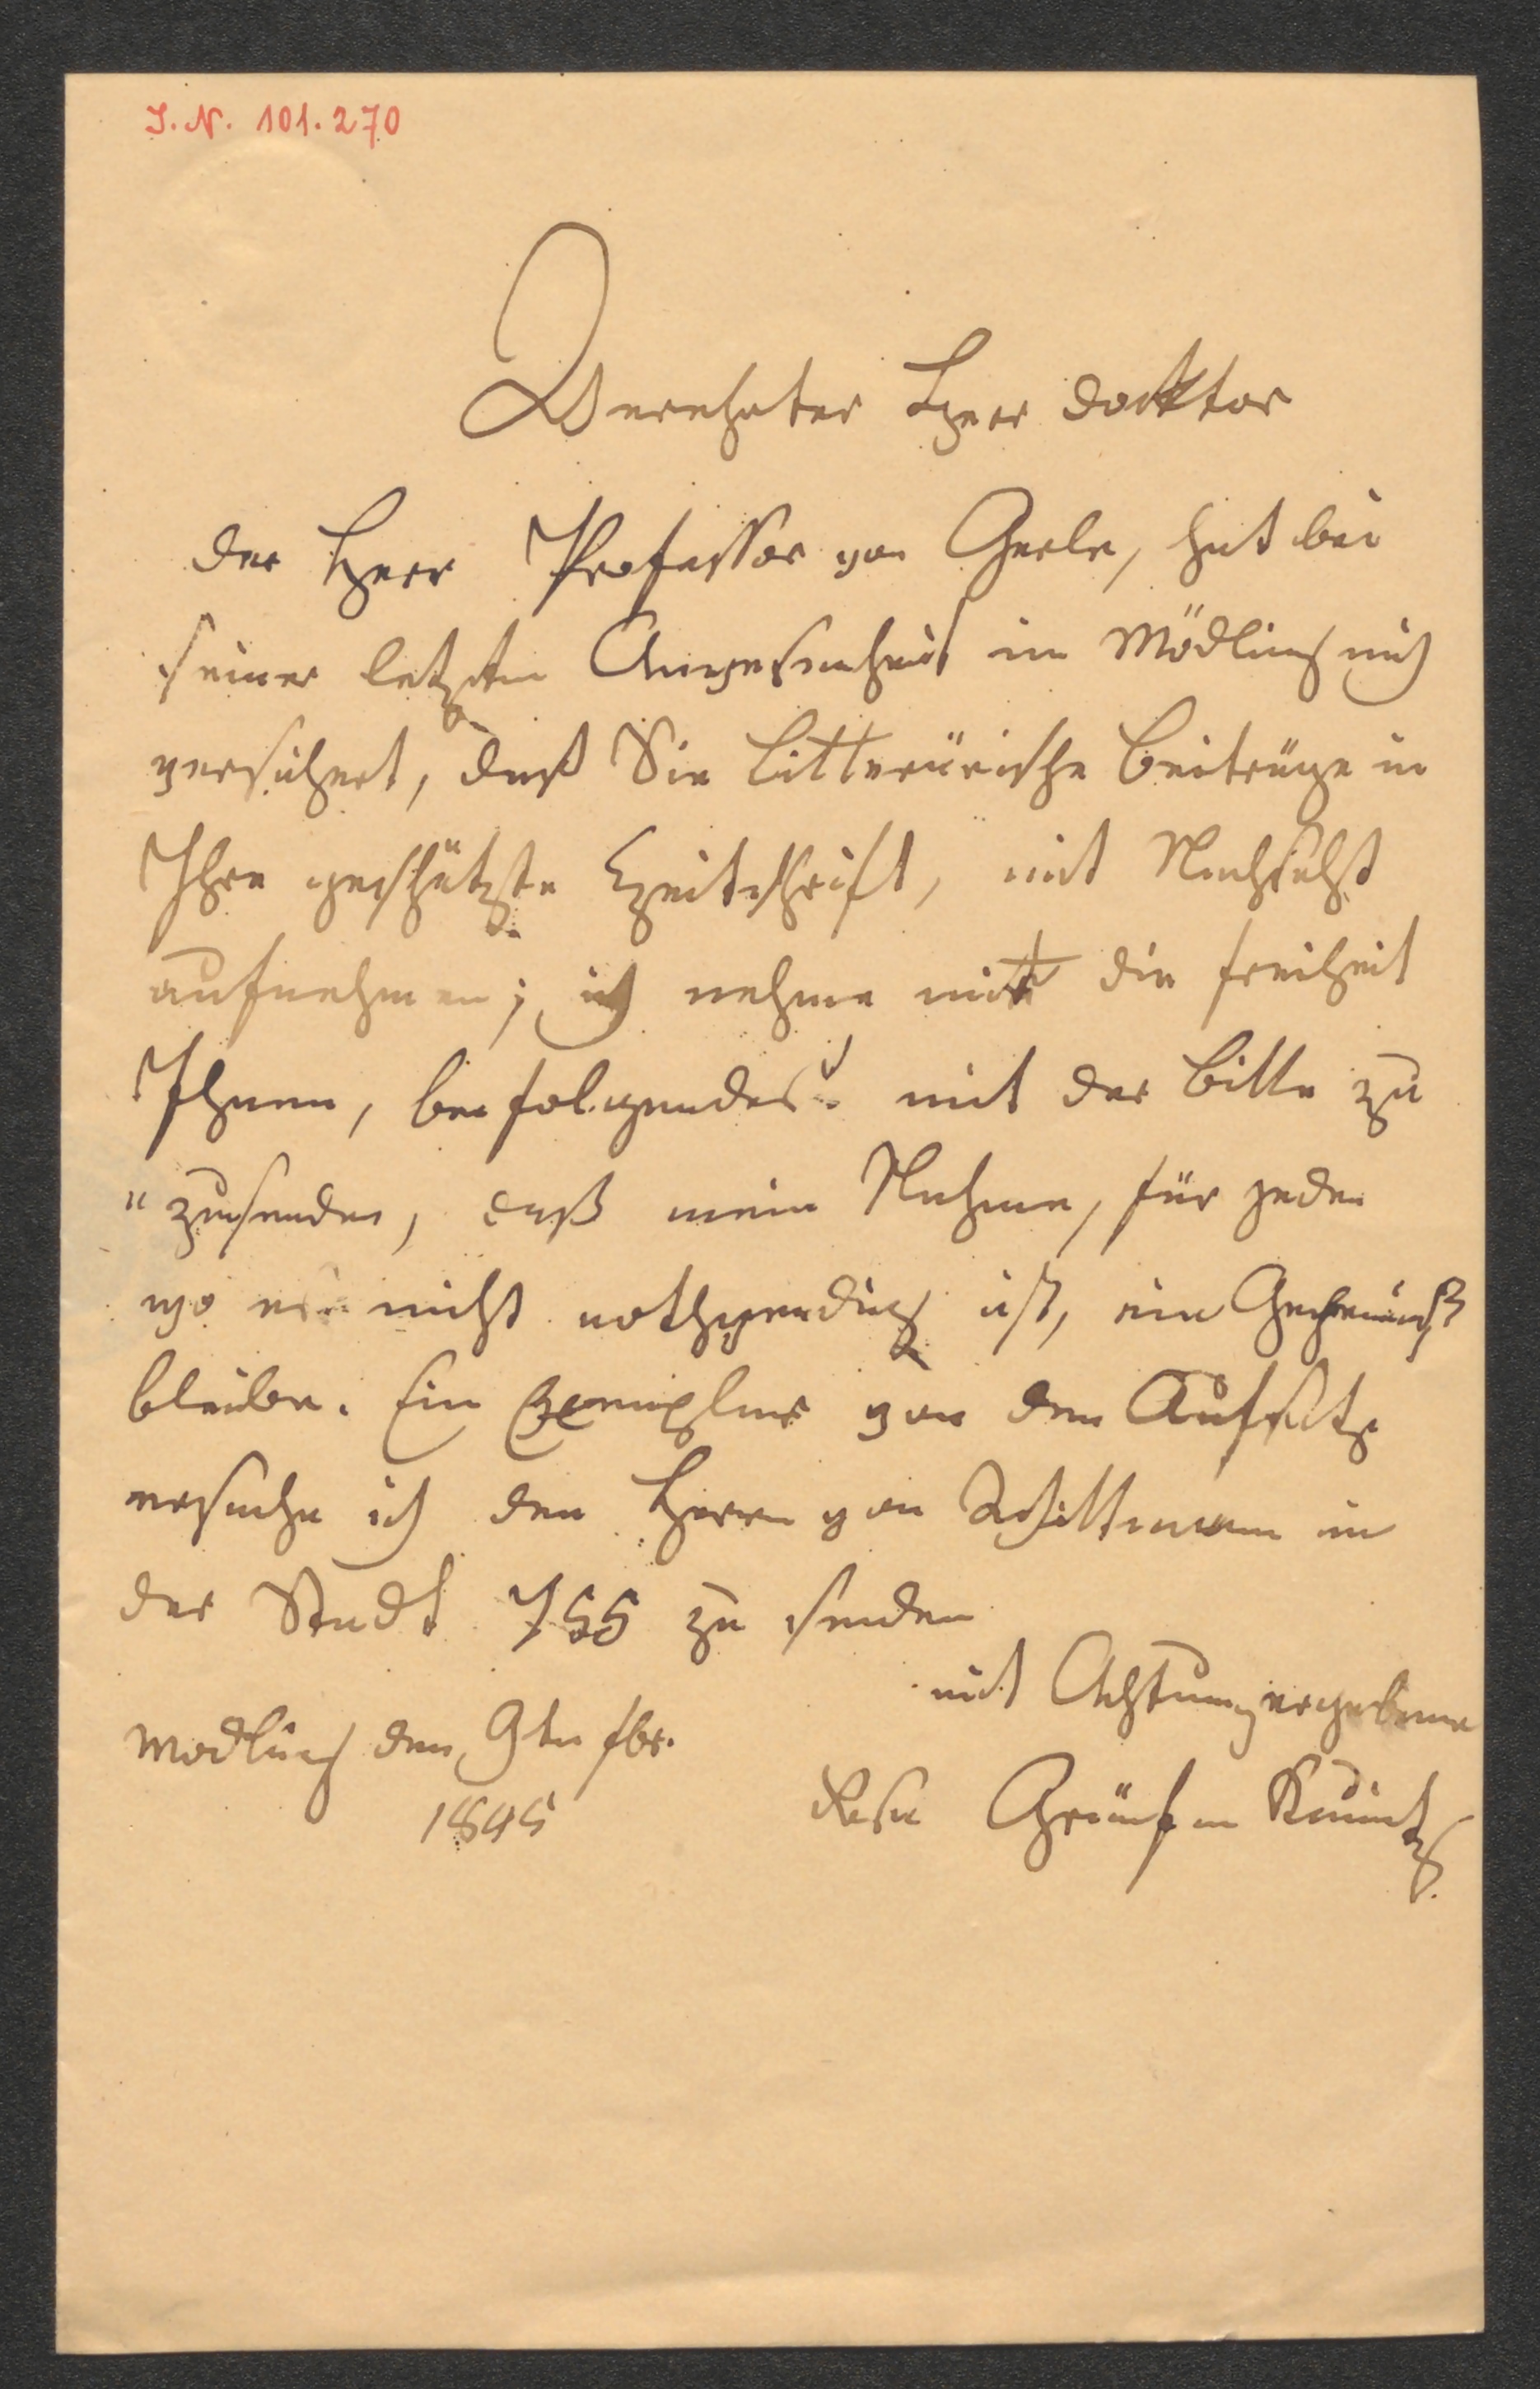 I. N. 101.270
Verehrter Herr Docktor
der Herr Professor von Gerle, hat bei
seiner letzten Anwesenheit in Mödling mich
versichert, daß Sie Litterärische Beiträge in
Ihre geschätzte Zeitschrift, mit Nachsicht
aufnehmen; ich nehme mir die freiheit
Ihnen, beifolgendes mit der bitte zu
"zusenden, daß mein Nahme, für jeden
wo es nicht nothwendig ist, ein Geheimniß
bleibe. Ein Exemplar von dem Aufsatz
ersuche ich den Herrn von Wittmann in
der Stadt 755 zu senden
mit Achtung ergebene
Mödling den 9ten fbr.
1845
Gräfin Kaunitz